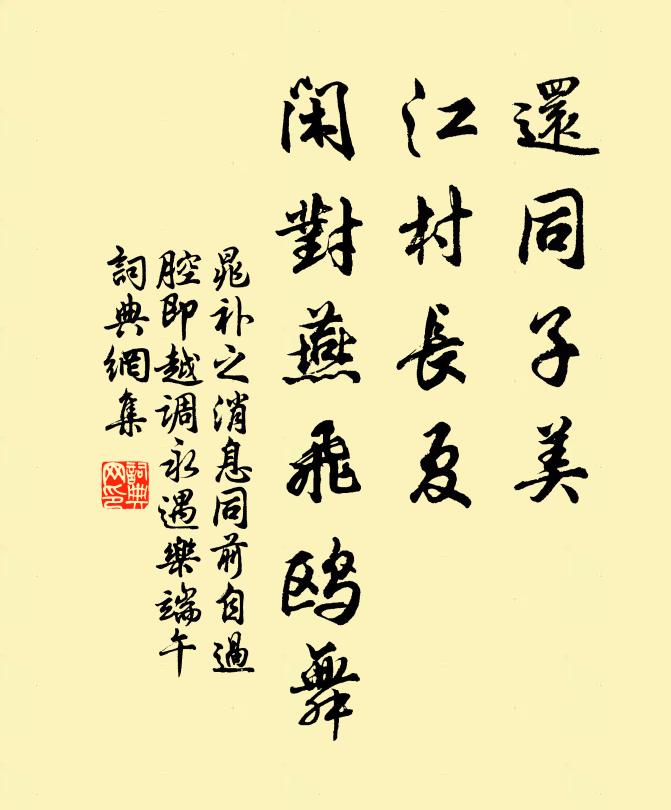 還同子美
江村長夏
闲對燕飛鸥舞
晁补之消息同前自過
腔即越調永遇樂端午
詞典網集
詞典网印